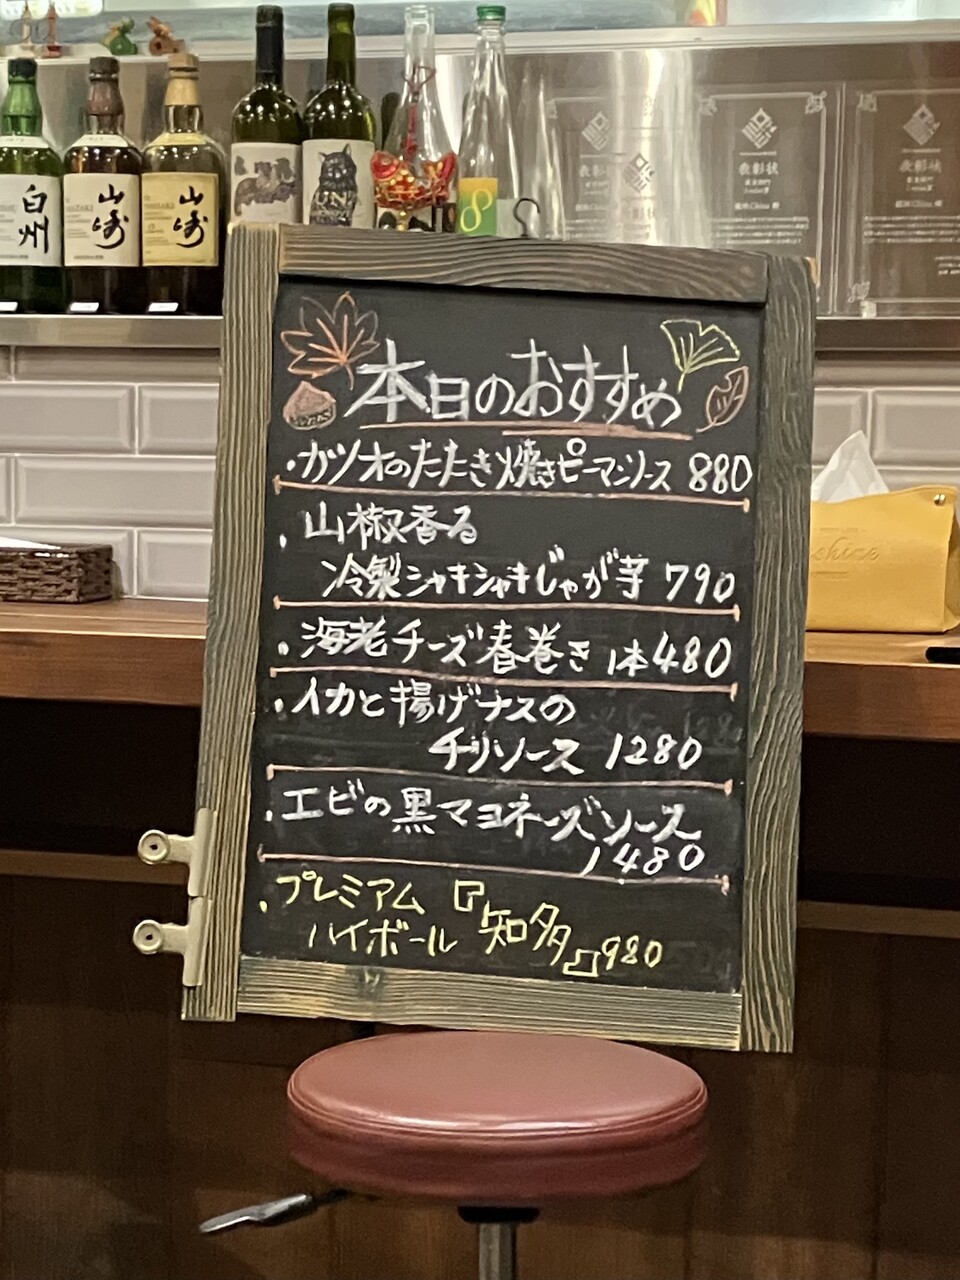 白州
山崎
山崎
8
表彰状
表彰状
表彰状
本日のおすすめ
・カツオのたたき焼きピーマンソース 880
・山椒香る
冷製シャキシャキじゃが芋 790
・海老チーズ春巻き 1本480
・イカと揚げナスの
チリソース 1280
・エビの黒マヨネーズソース
1480
・プレミアム
ハイボール『知多』980